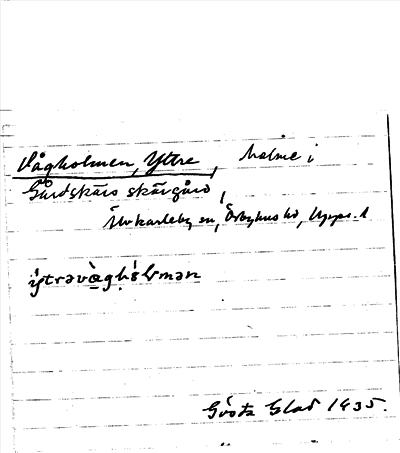 Vågholmen, Yttre, holme i
Gårdskärs skärgård,
Älvkarleby sn, Örbyhus hd, Upps. l
ÿtrəvàghólmən
Gösta Glad 1935.